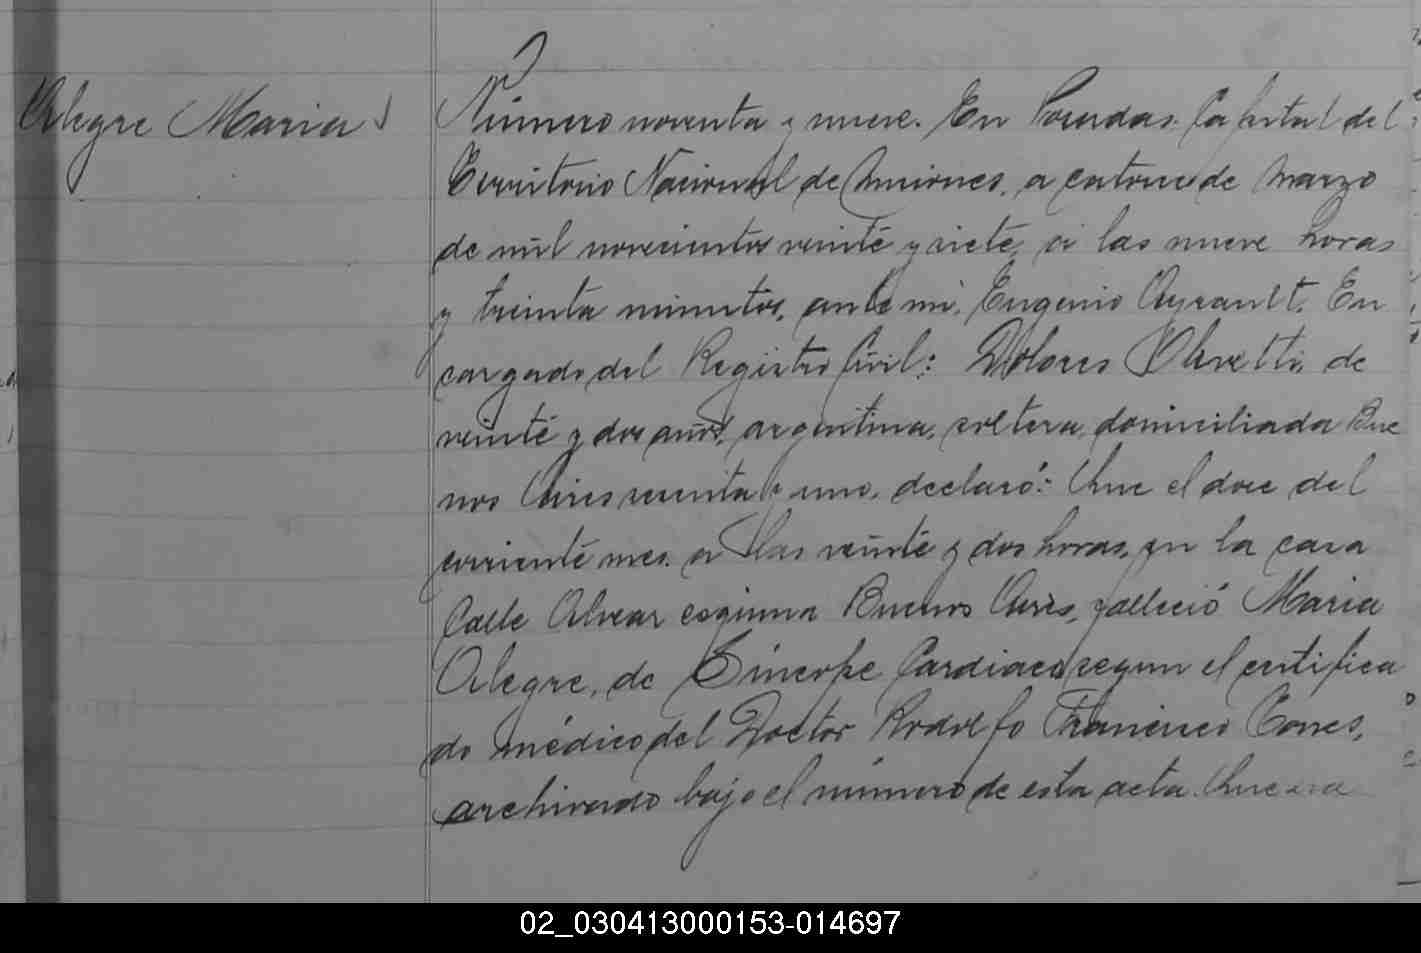 Alegre Maria
Número noventa y nueve. En Posadas. Capital del
Territorio Nacional de Misiones, a catorce de Marzo
de mil novecientos veinte y siete, a las nueve horas
y treinta minutos, ante mi, Eugenio Ayrault. En
cargado del Registro Civil: Dolores Olivetti, de
veinte y dos años, argentina, soltera, domiciliada Bue
nos Aires sesenta y uno, declaró: Que el doce del
corriente mes. a las veinte y dos horas, en la casa
Calle Alvear esquina Buenos Aires, falleció Maria
Alegre, de Síncope Cardiaco, segun el certifica
do médico del Doctor Rodolfo Francisco Torres,
archivado bajo el número de esta acta. Que era
02_030413000153-014697